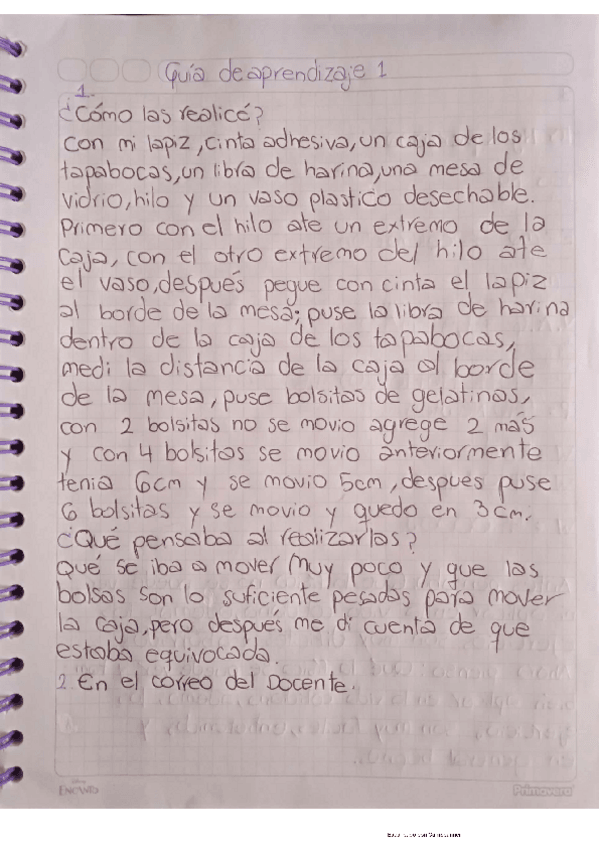 Guía de aprendizaje 1
1.
¿Cómo las realicé?
Con mi lapiz, cinta adhesiva, un caja de los
tapabocas, un libra de harina, una mesa de
vidrio, hilo y un vaso plastico desechable.
Primero con el hilo ate un extremo de la
caja, con el otro extremo del hilo ate
el vaso, después pegue con cinta el lapiz
al borde de la mesa; puse la libra de harina
dentro de la caja de los tapabocas,
medi la distancia de la caja al borde
de la mesa, puse bolsitas de gelatinas,
con 2 bolsitas no se movio agrege 2 más
y con 4 bolsitas se movio anteriormente
tenia 6cm y se movio 5cm, despues puse
6 bolsitas y se movio y quedo en 3cm.
¿Qué pensaba al realizarlas?
Qué se iba a mover muy poco y que las
bolsas son lo suficiente pesadas para mover
la caja, pero después me di cuenta de que
estaba equivocada.
2. En el correo del Docente.
ENCANTO
Primavera